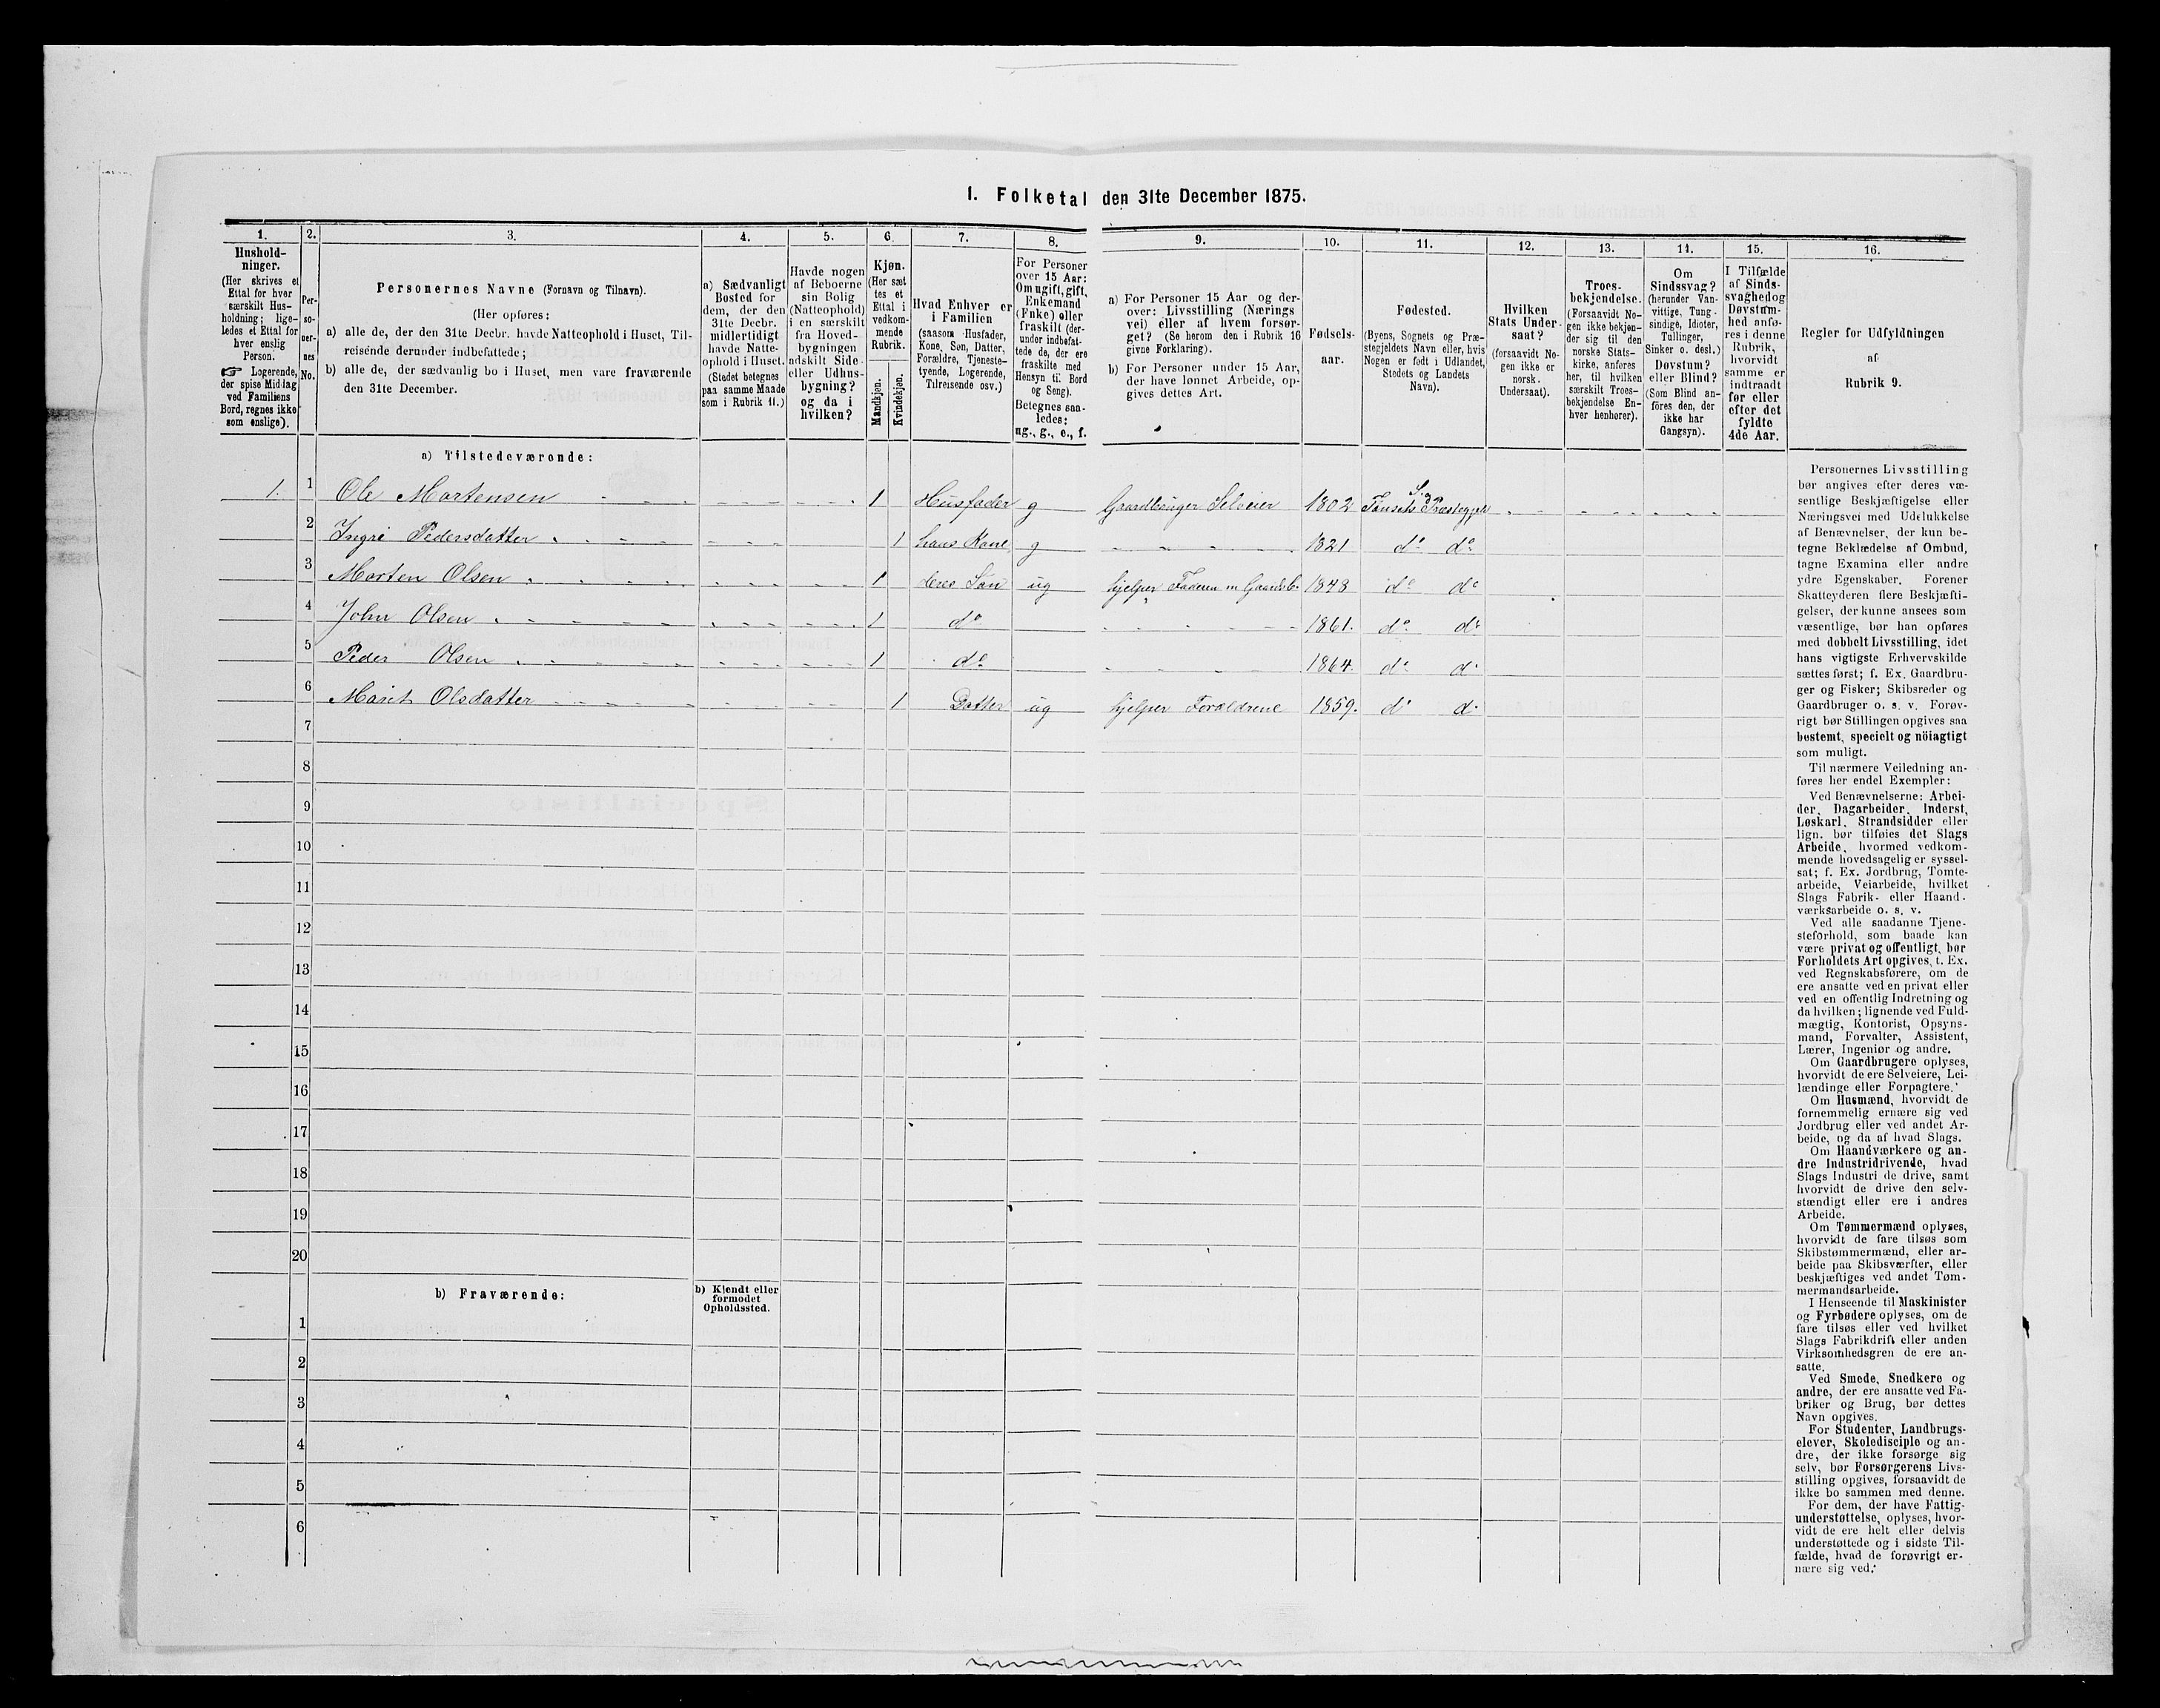 1. Folketal den 31te December 1875.
1.
Hushold-
ninger.
(Her skrives et
Ettal for hver
særskilt Hus-
holdning; lige-
ledes et Ettal for
hver enslig
Person.
☞ Logerende,
der spise Middag
ved Familiens
Bord, regnes ikke
som enslige).
2.
Per-
so-
ner-
nes
No.
3.
Personernes Navne (Fornavn og Tilnavn).
(Her opføres:
a) alle de, der den 31te Decbr. havde Natteophold i Huset, Til-
reisende derunder indbefattede;
b) alle de, der sædvanlig bo i Huset, men vare fraværende
den 31te December.
4.
a) Sædvanligt
Bosted for
dem, der den
31te Decbr.
midlertidigt
havde Natte-
ophold i Huset.
(Stedet betegnes
paa samme Maade
som i Rubrik 11.)
5.
Havde nogen
af Beboerne
sin Bolig
(Natteophold)
i en særskilt
fra Hoved-
bygningen
adskilt Side-
eller Udhus-
bygning?
og da i
hvilken?
6.
Kjøn.
(Her sæt
tes et
Ettal i
vedkom-
mende
Rubrik.
Mandkjøn.
Kvindekjøn.
7.
Hvad Enhver er
i Familien
(saasom Husfader,
Kone, Søn, Datter,
Forældre, Tjeneste-
tyende, Logerende,
Tilreisende osv.)
8.
For Personer
over 15 Aar:
Om ugift, gift,
Enkemand
(Enke) eller
fraskilt (der-
under indbefat-
tede de, der ere
fraskilte med
Hensyn til Bord
og Seng).
Betegnes saa-
ledes:
ug., g., e., f.
9.
a) For Personer 15 Aar og der-
over: Livsstilling (Nærings
vei) eller af hvem forsør-
get? (Se herom den i Rubrik 16
givne Forklaring).
b) For Personer under 15 Aar,
der have lønnet Arbeide, op-
gives dettes Art.
10.
Fødsels-
aar.
11.
Fødested.
(Byens, Sognets og Præ-
stegjeldets Navn eller, hvis
Nogen er født i Udlandet,
Stedets og Landets
Navn).
12.
Hvilken
Stats Under-
saat?
(forsaavidt No-
gen ikke er
norsk
Undersaat).
13.
Troes-
bekjendelse.
(Forsaavidt No-
gen ikke bekjen-
der sig til den
norske Stats-
kirke, anføres
her, til hvilken
særskilt Troes-
bekjendelse En-
hver henhører).
14.
Om
Sindssvag?
(herunder Van-
vittige, Tung-
sindige, Idioter,
Tullinger,
Sinker o. desl.)
Døvstum?
eller Blind?
(Som Blind an-
føres den, der
ikke har
Gangsyn).
15.
I Tilfælde
af Sinds-
svaghed og
Døvstum-
hed anfø-
res i denne
Rubrik,
hvorvidt
samme er
indtraadt
før eller
efter det
fyldte
4de Aar.
16.
Regler for Udfyldningen
af
Rubrik 9.
a) Tilstedeværende:
1. 1 Ole Mortensen 1 Husfader g Gaardbruger Selveier 1802 Tønsets Præstegjeld
2 Ingri Pedersdatter 1 hans Kone g 1821 do do
3 Morten Olsen 1 deres Søn ug hjelper Faderen m Gaardsb. 1848 do do
4 John Olsen 1 do 1861. do do
5 Peder Olsen 1 do 1864. do d.
6 Marit Olsdatter 1 Datter ug hjelper Forældrene 1859. do d.
7
8
9
10
11
12
13
14
15
16
17
18
19
20
b) Fraværende:
b) Kjendt eller
formodet
Opholdssted.
1
2
3
4
5
6
Personernes Livsstilling
bør angives efter deres væ-
sentlige Beskjæftigelse eller
Næringsvei med Udelukkelse
af Benævnelser, der kun be-
tegne Beklædelse af Ombud,
tagne Examina eller andre
ydre Egenskaber. Forener
Skatteyderen flere Beskjæfti-
gelser, der kunne ansees som
væsentlige, bør han opføres
med dobbelt Livsstilling, idet
hans vigtigste Erhvervskilde
sættes først; f. Ex. Gaardbru-
ger og Fisker; Skibsreder og
Gaardbruger o. s. v. Forøv-
rigt bør Stillingen opgives saa
bestemt, specielt og nöiagtigt
som muligt.
Til nærmere Veiledning an-
føres her endel Exempler:
Ved Benævnelserne: Arbei-
der, Dagarbeider, Inderst,
Løskarl, Strandsidder eller
lign. bør tilføies det Slags
Arbeide, hvormed vedkom-
mende hovedsagelig er syssel-
sat; f. Ex. Jordbrug, Tomte-
arbeide, Veiarbeide, hvilket
Slags Fabrik- eller Haand-
værksarbeide o. s. v.
Ved alle saadanne Tjene-
steforhold, som baade kan
være privat og offentligt, bør
Forholdets Art opgives, t. Ex.
ved Regnskabsførere, om de
ere ansatte ved en privat eller
ved en offentlig Indretning og
da hvilken; lignende ved Fuld-
mægtig, Kontorist, Opsyns-
mand, Forvalter, Assistent,
Lærer, Ingeniør og andre.
Om Gaardbrugere oplyses,
hvorvidt de ere Selveiere, Lei-
lændinge eller Forpagtere.
Om Husmænd, hvorvidt de
fornemmelig ernære sig ved
Jordbrug eller ved andet Ar-
beide, og da af hvad Slags.
Om Haandværkere og an-
dre Industridrivende, hvad
Slags Industri de drive, samt
hvorvidt de drive den selv-
stændigt eller ere i andres
Arbeide.
Om Tømmermænd oplyses,
hvorvidt de fare tilsøs som
Skibstømmermænd, eller ar-
beide paa Skibsværfter, eller
beskjæftiges ved andet Tøm-
mermandsarbeide.
I Henseende til Maskinister
og Fyrbødere oplyses, om de
fare tilsøs eller ved hvilket
Slags Fabrikdrift eller anden
Virksomhedsgren de ere an-
satte.
Ved Smede, Snedkere og
andre, der ere ansatte ved Fa-
briker og Brug, bør dettes
Navn opgives.
For Studenter, Landbrugs-
elever, Skoledisciple og an-
dre, der ikke forsørge sig
selv, bør Forsørgerens Livs-
stilling opgives, forsaavidt de
ikke bo sammen med denne.
For dem, der have Fattig-
understøttelse, oplyses, hvor-
vidt de ere helt eller delvis
understøttede og i sidste Til-
fælde, hvad de forøvrigt er-
nære sig ved.